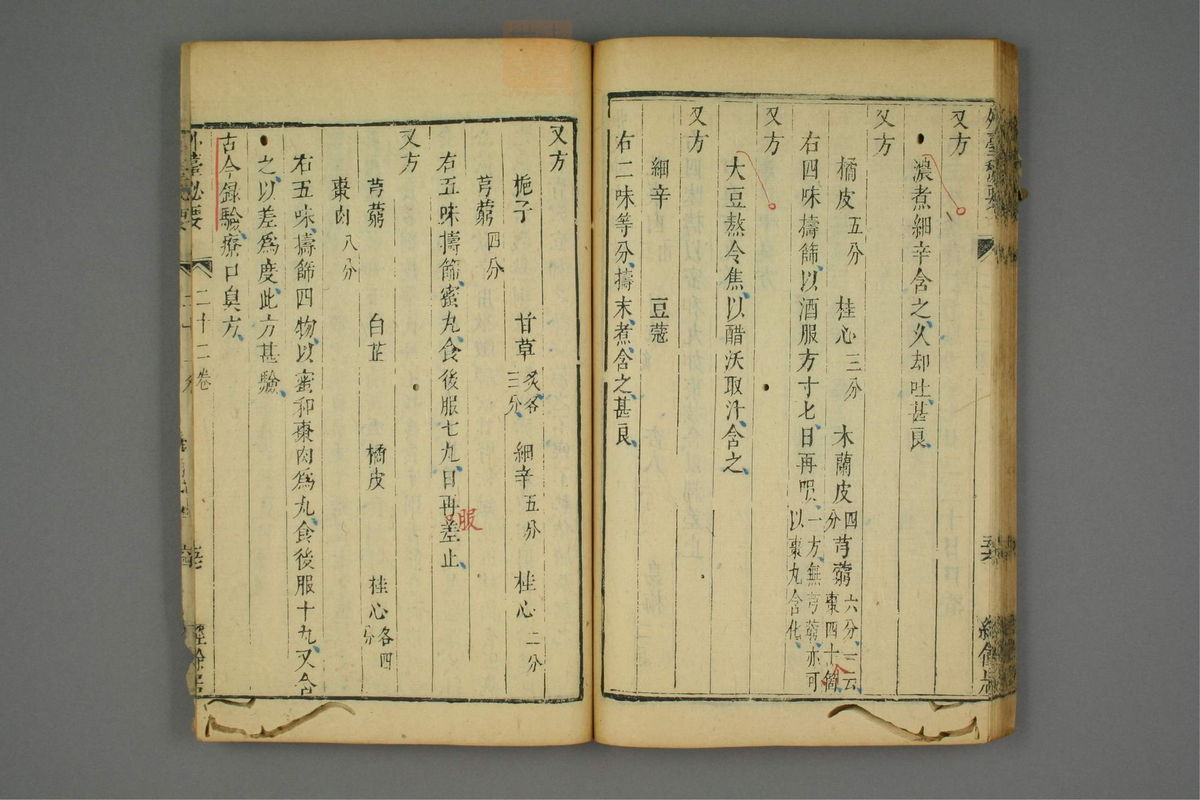 又方
濃煮細辛含之久却吐甚良
又方
橘皮五分 桂心三分 木蘭皮四分 芎藭六分一云棗四十箇
右四味擣篩以酒服方寸匕日再服一方無芎藭亦可以棗丸含化
又方
大豆熬令焦以醋沃取汁含之
又方
細辛 豆蔻
右二味等分擣末煮含之甚良
又方
梔子 甘草炙各三分 細辛五分 桂心二分
芎藭四分
右五味擣篩蜜丸食後服七丸日再差止
服
又方
芎藭 白芷 橘皮 桂心各四分
棗肉八分
右五味擣篩四物以蜜和棗肉爲丸食後服十丸又含
之以差爲度此方甚驗
古今録驗療口臭方
外臺祕要 二十二卷
經餘居